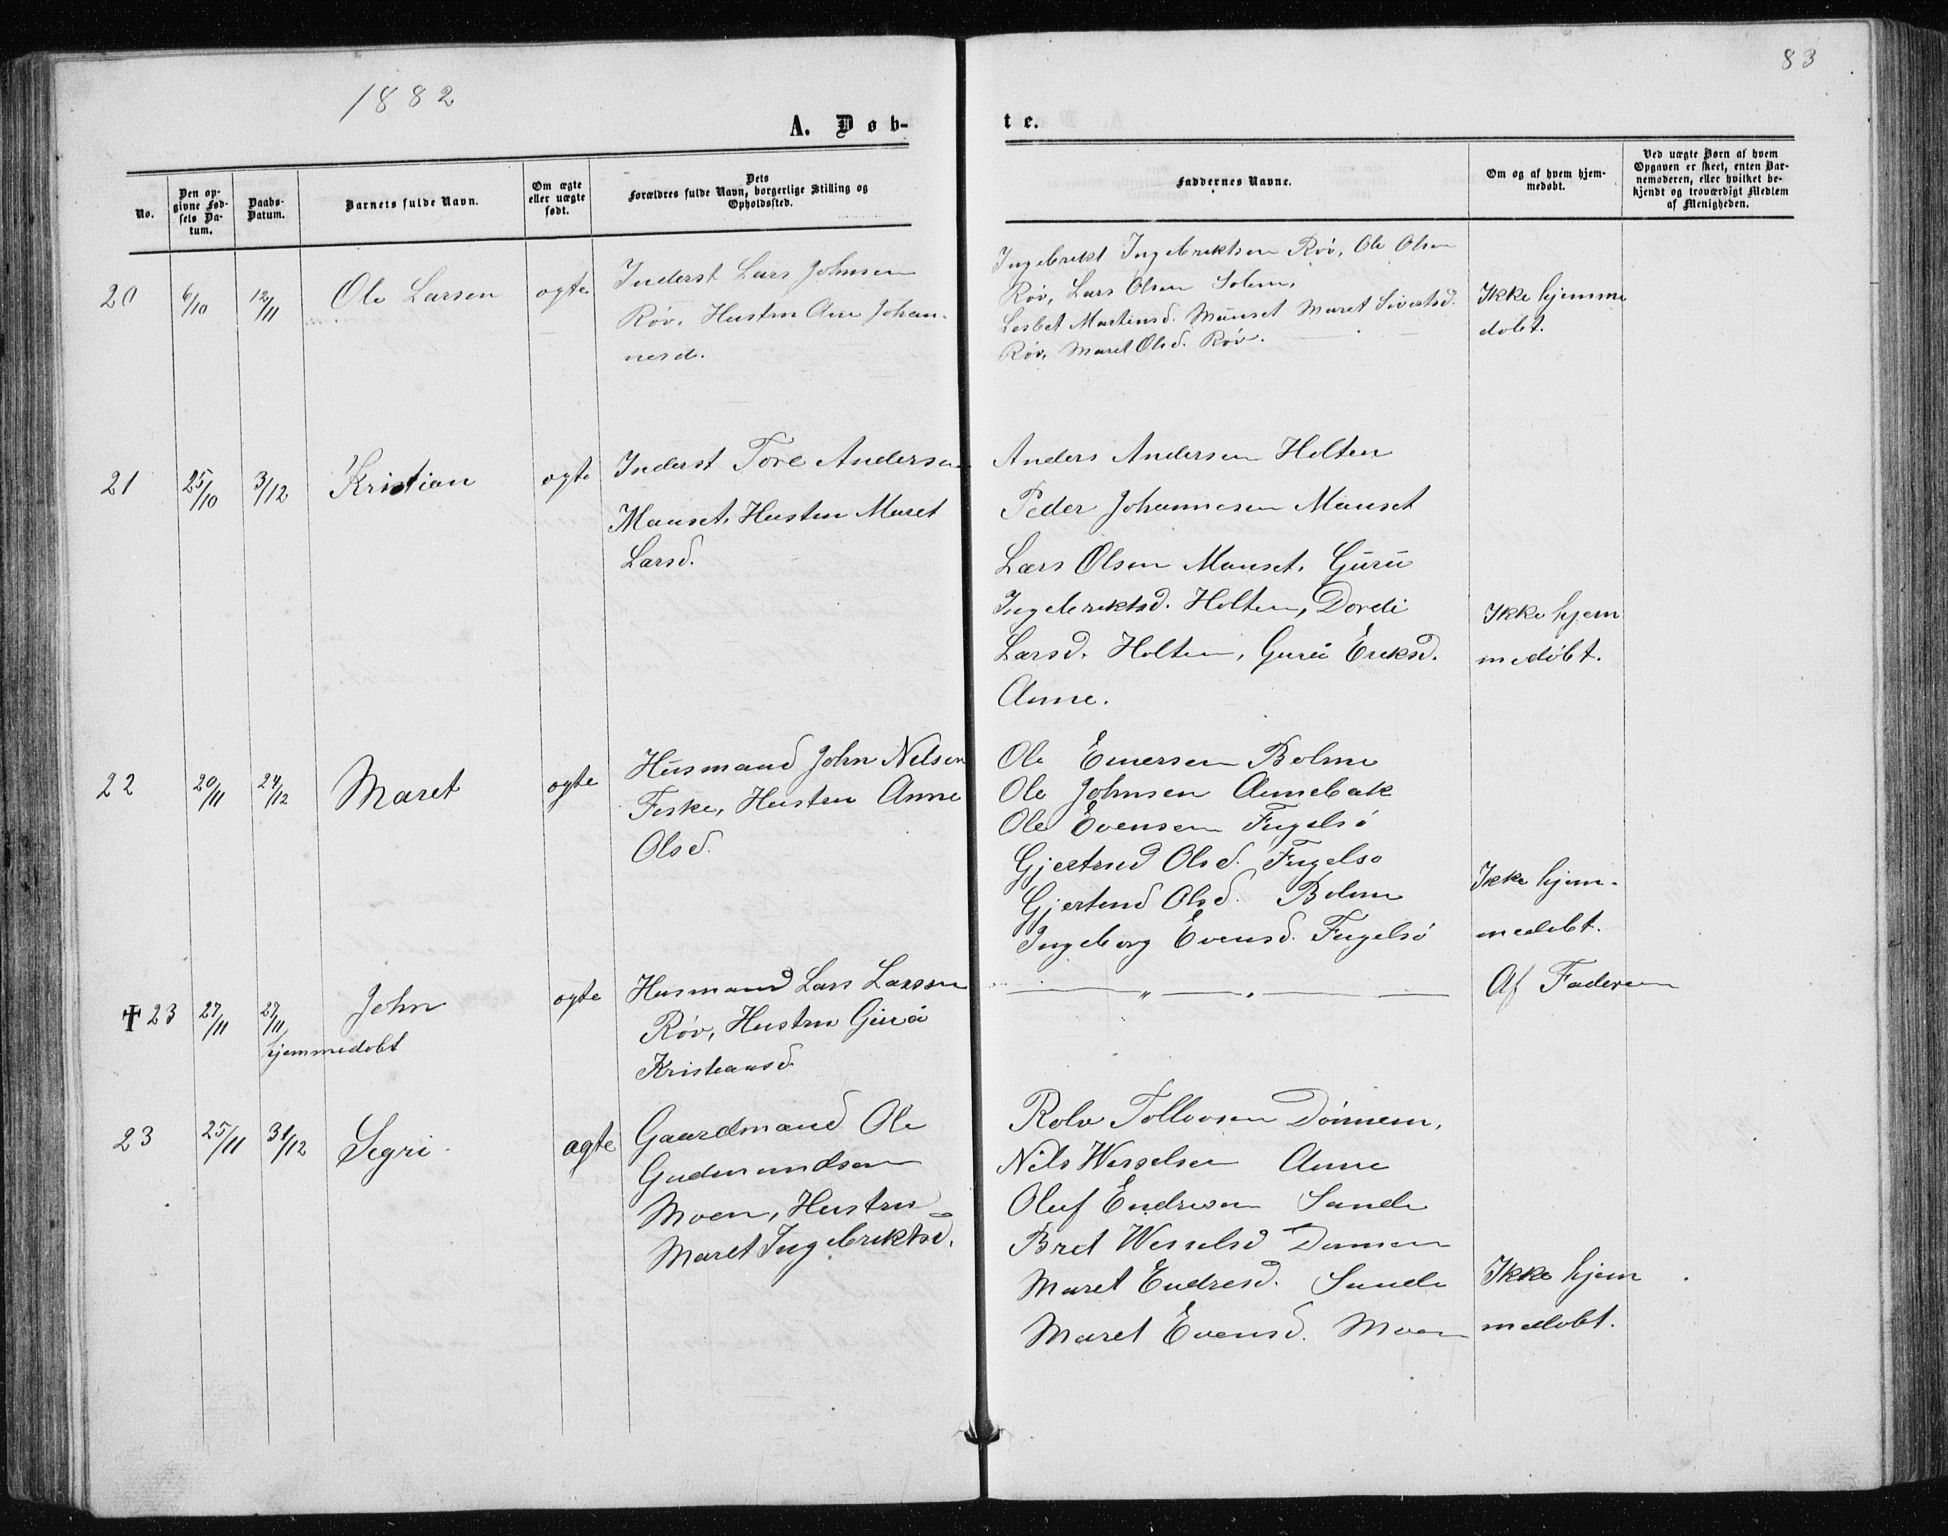 1882
83
A. Døb-
te.
No.
Den op-
givne Fød-
sels Da-
tum.
Daabs-
Datum.
Barnets fulde Navn.
Om ægte
eller uægte
født.
Dets
Forældres fulde Navn, borgerlige Stilling og
Opholdssted.
Faddernes Navne.
Om og af hvem hjem-
medøbt.
Ved uægte Børn af hvem
Opgaven er skeet, enten Bar-
nemoderen, eller hvilket be-
kjendt og troværdigt Medlem
af Menigheden.
20
6/10
12/11
Ole Larsen
ægte
Inderst Lars Johnsen
Røv, Hustru Ane Johan-
nesd.
Ingebrikt Ingebriktsen Røv, Ole Olsen
Røv, Lars Olsen Solem,
Lesbet Martinsd. Mauset Maret Sivertsd.
Røv, Maret Olsd. Røv.
Ikke hjemme
døbt.
21
25/10
3/12
Kristian
ægte
Inderst Tore Andersen
Mauset, Hustru Maret
Larsd.
Anders Andersen Holten
Peder Johannesen Mauset
Lars Olsen Mauset, Guru
Ingebriktsd. Holten, Dordi
Larsd. Holten, Guru Eriksd.
Aune.
Ikke hjem
medøbt.
22
20/11
24/12
Maret
ægte
Husmand John Nelsen
Feske, Hustru Anne
Olsd.
Ole Einersen Bolme
Ole Johnsen Aunebak
Ole Evensen Fugelsø
Gjertrud Olsd. Fugelsø
Gjertrud Olsd. Bolme
Ingeborg Evensd. Fugelsø
Ikke hjem-
medøbt.
✝ 23
27/11
27/11
hjemmedøbt
John
ægte
Husmand Lars Larsen
Røv, Hustru Guru
Kristiansd.
— " — " —
Af Faderen
23
25/11
31/12
Segri
ægte
Gaardmand Ole
Gudmundsen
Moen, Hustru
Maret Ingebriktsd.
Rolv Tollevsen Dønnem,
Nils Wesselsen Aune
Oluf Endresen Sande
Bret Wesselsd Dønnem
Maret Endresd. Sande
Maret Evensd. Moen
Ikke hjem
medøbt.